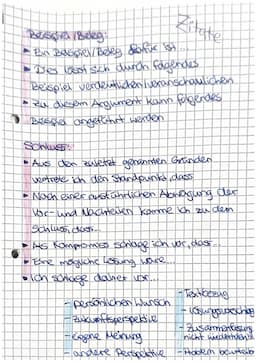 Zitate
Beispiel/Beleg:
Ein Beispiel/Beleg dafür ist...
Dies lässt sich durch folgendes
Beispiel verdeutlichen/veranschaulichen
Zu diesem Argument kann folgendes
Beispiel angeführt werden
Schluss:
Aus den zuletzt genannten Gründen
vertrete ich den Standpunkt, dass
Nach einer ausführlichen Abwägung der
Vor- und Nachteilen komme ich zu dem
Schluss, dass...
Als Kompromiss schlage ich vor, dass...
Eine mögliche Lösung wäre...
Ich schlage daher vor...
- persönlichen Wunsch
- Zukunftsperspektive
- eigene Meinung
- andere Perspektive
- Textbezug
- Lösungsvorschlag
- Zusammenfassung
nicht wiederholen